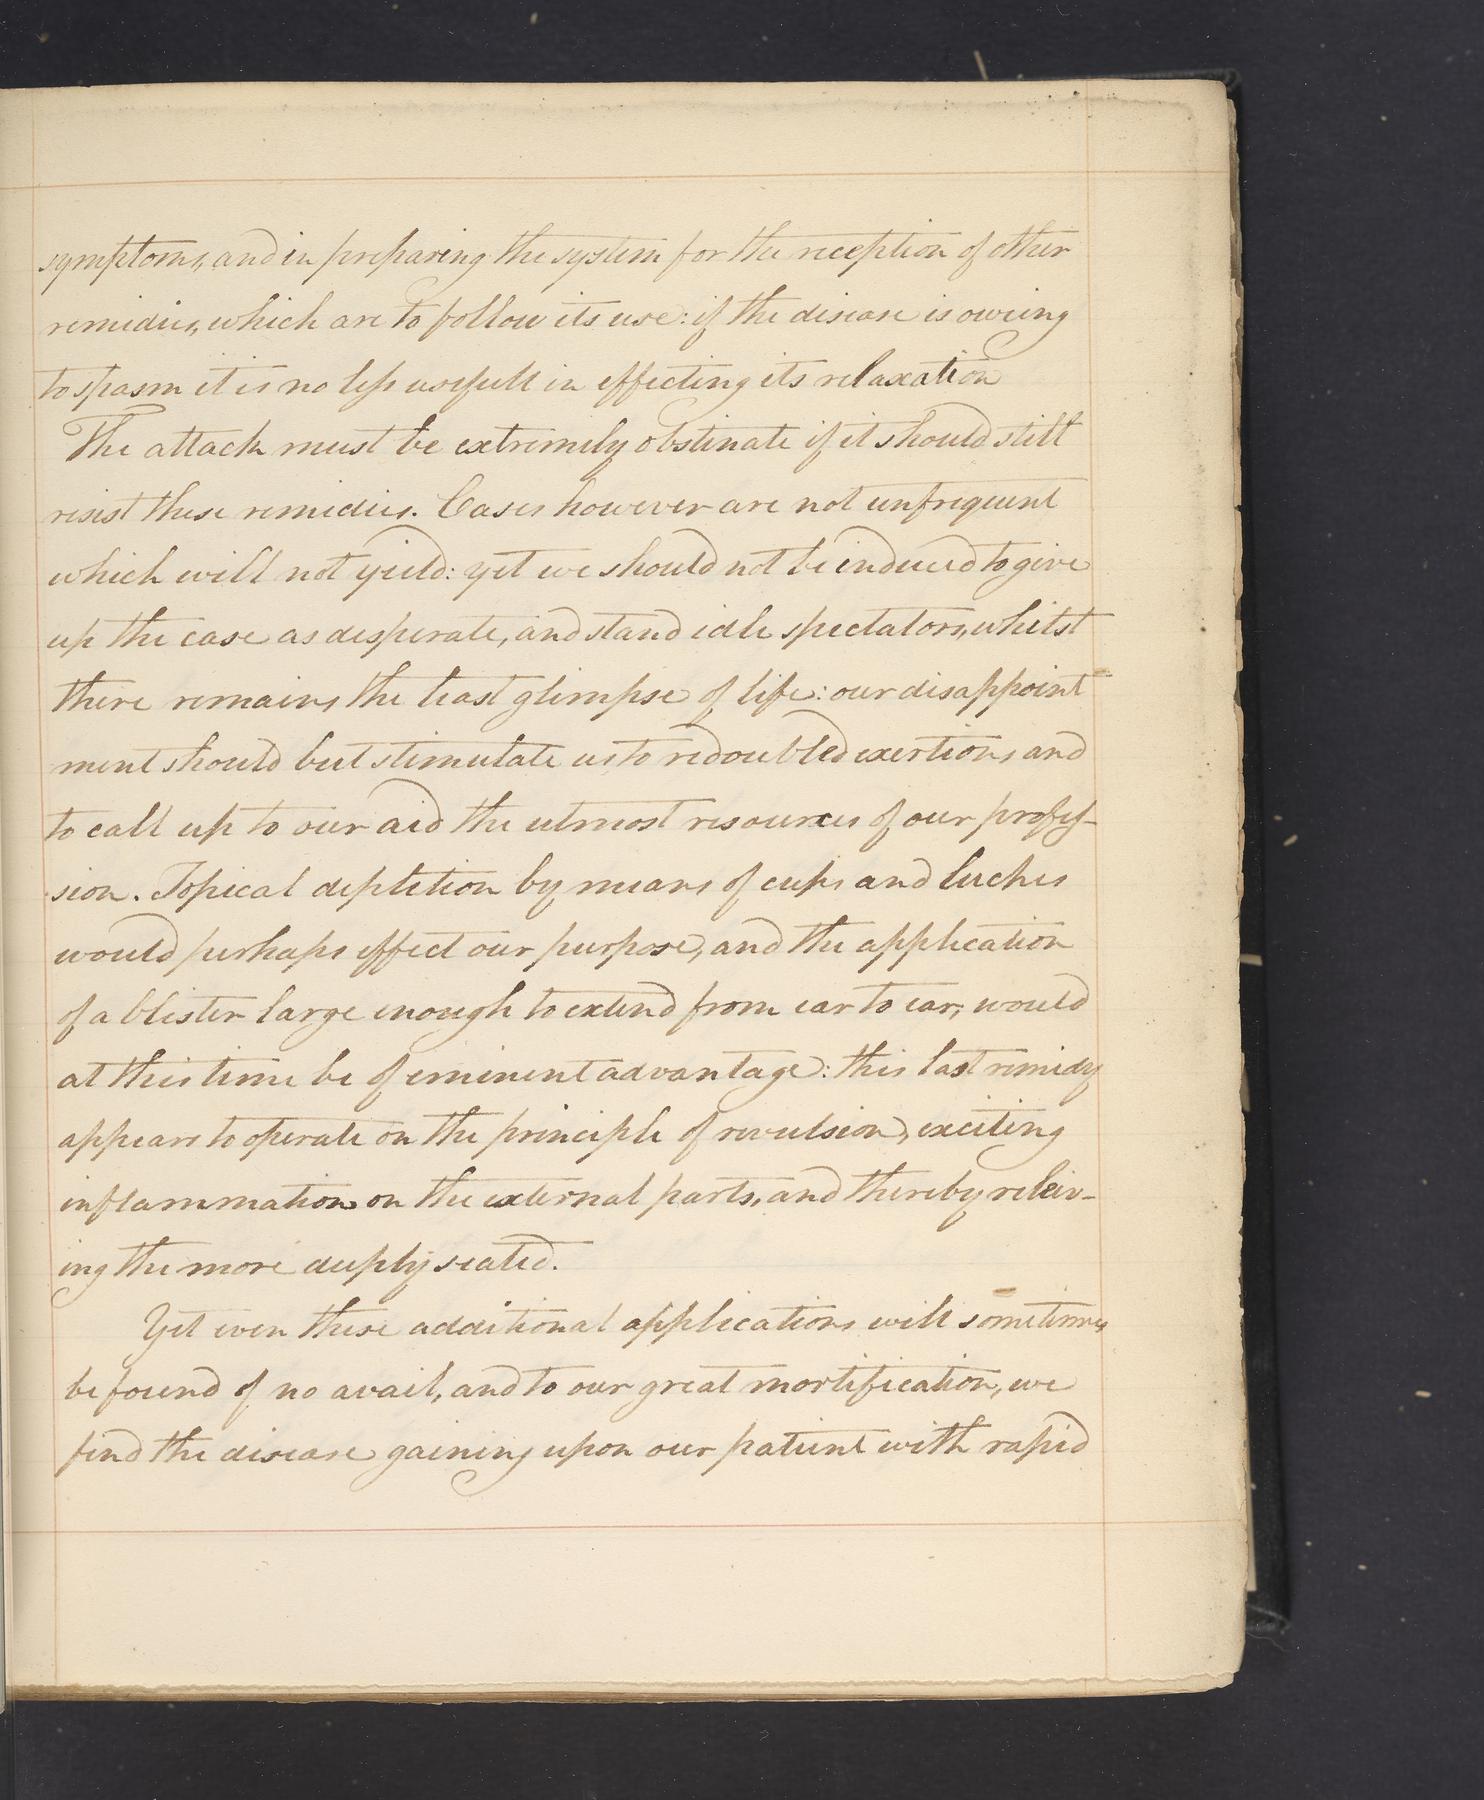 symptoms, and in preparing the system for the reception of other
remidies, which are to follow its use: if the disease is oweing
to spasm it is no less usefull in effecting its relaxation
The attack must be extremely obstinate if it should still
resist these remidies. Cases however are not unfrequent
which will not yield: yet we should not be induced to give
up the case as desperate, and stand idle spectators, whilst
there remains the least glimpse of life: our disappoint
ment should but stimulate us to redoubled exertions and
to call up to our aid the utmost resources of our profes-
sion. Topical depletion by means of cups and leeches
would perhaps effect our purpose, and the application
of a blister large enough to extend from ear to ear, would
at this time be of eminent advantage: this last remidy
appears to operate on the principle of revulsion, exciting
inflammation on the external parts, and thereby releiv-
ing the more deeply seated.
Yet even these additional applications will sometimes
be found of no avail, and to our great mortification, we
find the disease gaining upon our patient with rapid